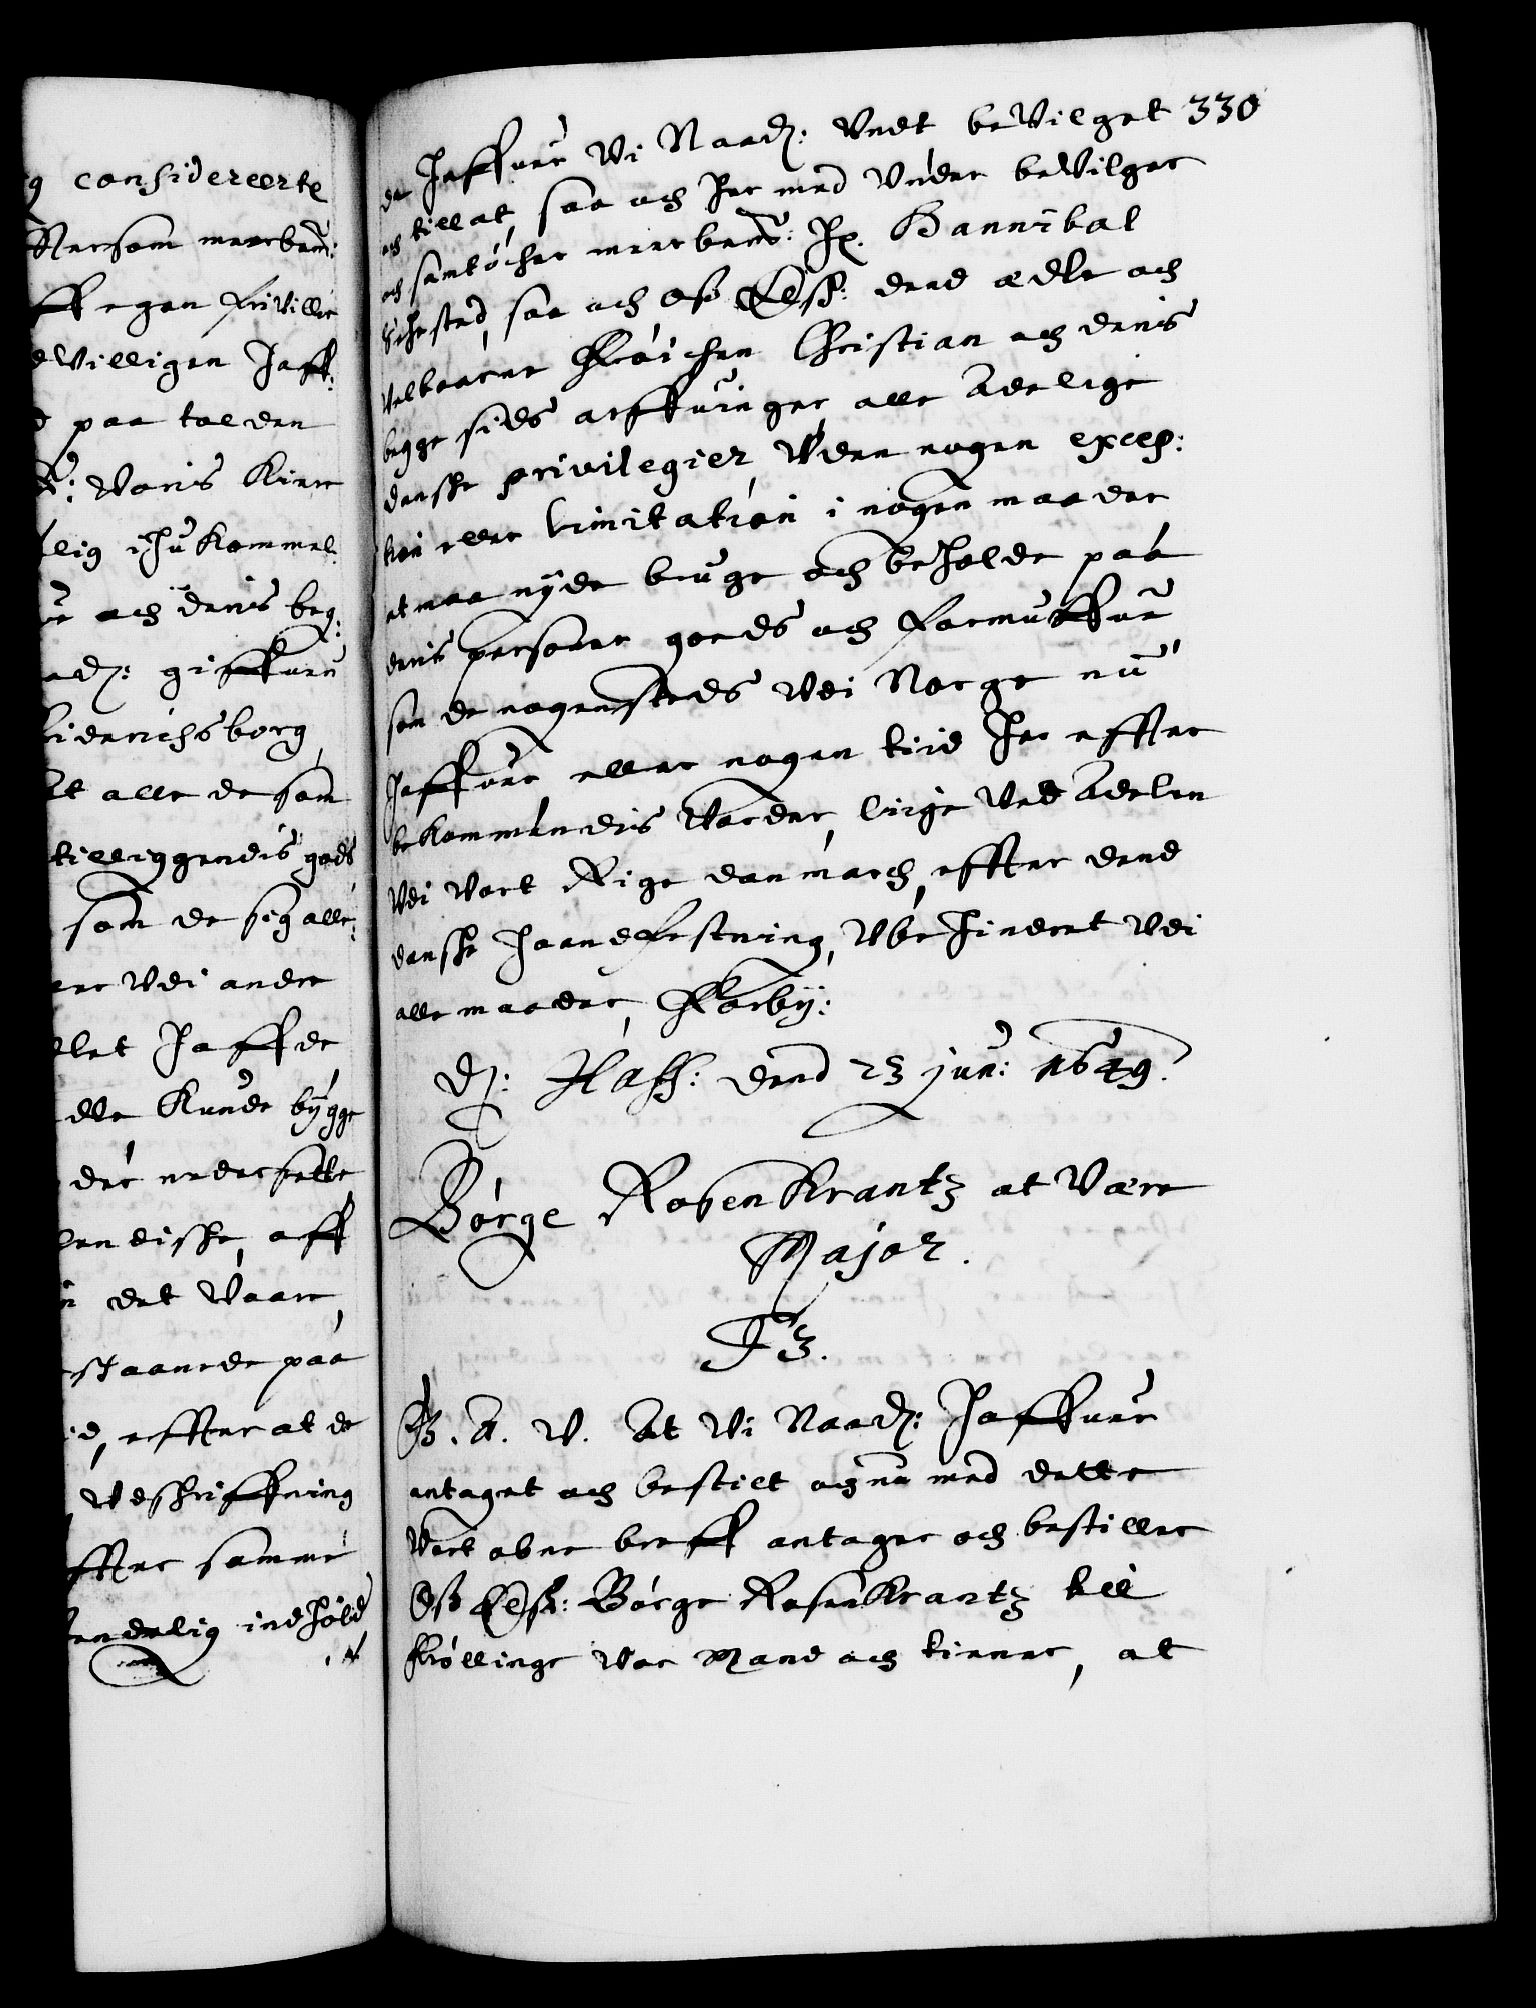 g considereerte
Nersom meerbem:
ff egen frivillie
dvilligen haff:
paa tolden
Voris Kiere
lig ihukommel
och denis beg:
ad: giffuen
riderichsborg
At alle de som
tilliggendis gods
som de sig alle:
ere Vdi andre
let haffde
dle Kunde bygge
der nedersette
lendiske, aff
det Vaare,
staaende paa
d, effter at de
Vdskriffning
ffter samme
endelig indhold
330
de haffuer Vi Naad: Vndt beVilget
och tillat, saa och her med Vnder beVilger
och samtöcher meerbemt: Hr. Hannibal
Sehested, saa och oss Elsk: dend ædle och
Velbaarne Fröichen Christian och denis
begge sids arffuinger alle Adelige
danske privilegier, Vden nogen excep:
tion eller limitation i nogen maader
at maa nyde bruge och beholde paa
denis personer goeds och formuffue
som de nogensteds Vdi Norge nu
haffuer eller nogen tiid her effter
bekommendis Vorder, liige Ved Adelen
Vdi Vort Rige danmarch, effter dend
danske haandfestning, Vbehindert Vdi
alle maader, Forby:
D: Haff: dend 23 jun: 1649.
Börge RosenKrantz at Være
Major.
F 3.
G. A. V. At Vi Naad: haffuer
antaget och bestilt och nu med dette
Vort obne breff antager och bestiller
Oss Elsk: Börge RosenKrantz till
Kiöllinge Vor Mand och tienner, at